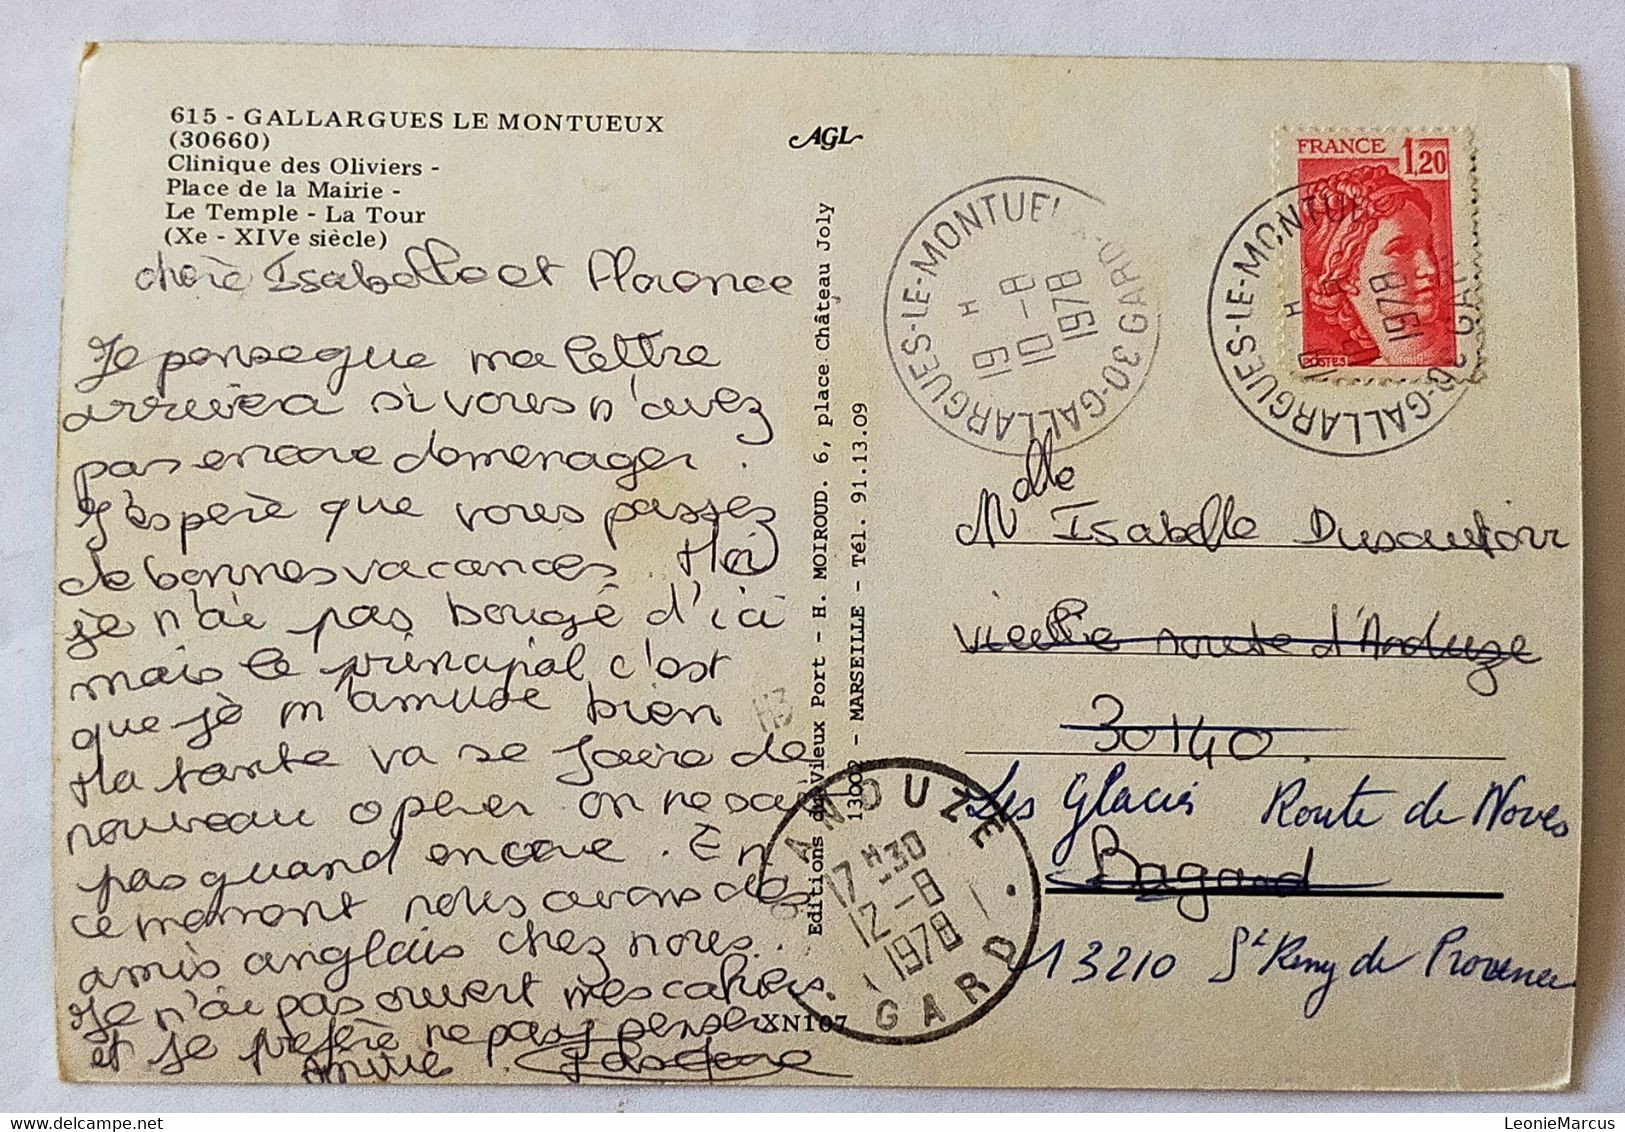 615 - GALLARGUES LE MONTUEUX
(30660)
Clinique des Oliviers -
Place de la Mairie -
Le Temple - La Tour
(Xe - XIVe siècle)
AGL
chère Isabelle et Florence
Je pense que ma lettre
arrivera si vous n'avez
pas encore demenager.
J'espère que vous passez
de bonnes vacances. Moi
je n'ai pas bougé d'ici
mais le principal c'est
que je m'amuse bien
Ma tante va se faire de
nouveau operer on ne sait
pas quand encore. En
ce moment nous avons des
amis anglais chez nous.
Je n'ai pas ouvert mes cahiers
et je préfère ne pas y penser
Amitié
Editions du Vieux Port - H. MOIROUD. 6, place Château Joly
13002 - MARSEILLE - Tél. 91.13.09
XN107
FRANCE 1,20
POSTES
GALLARGUES-LE-MONTUEUX
30 GARD
19 H
10-8
1978
GALLARGUES-LE-MONTUEUX
30 GARD
H
1978
ANDUZE
17 H 30
12-8
1978
GARD
Mdlle Isabelle Dusautoir
vieille route d'Anduze
30140.
Les Glacis Route de Noves
Bagard
13210 St Remy de Provence
LeonieMarcus